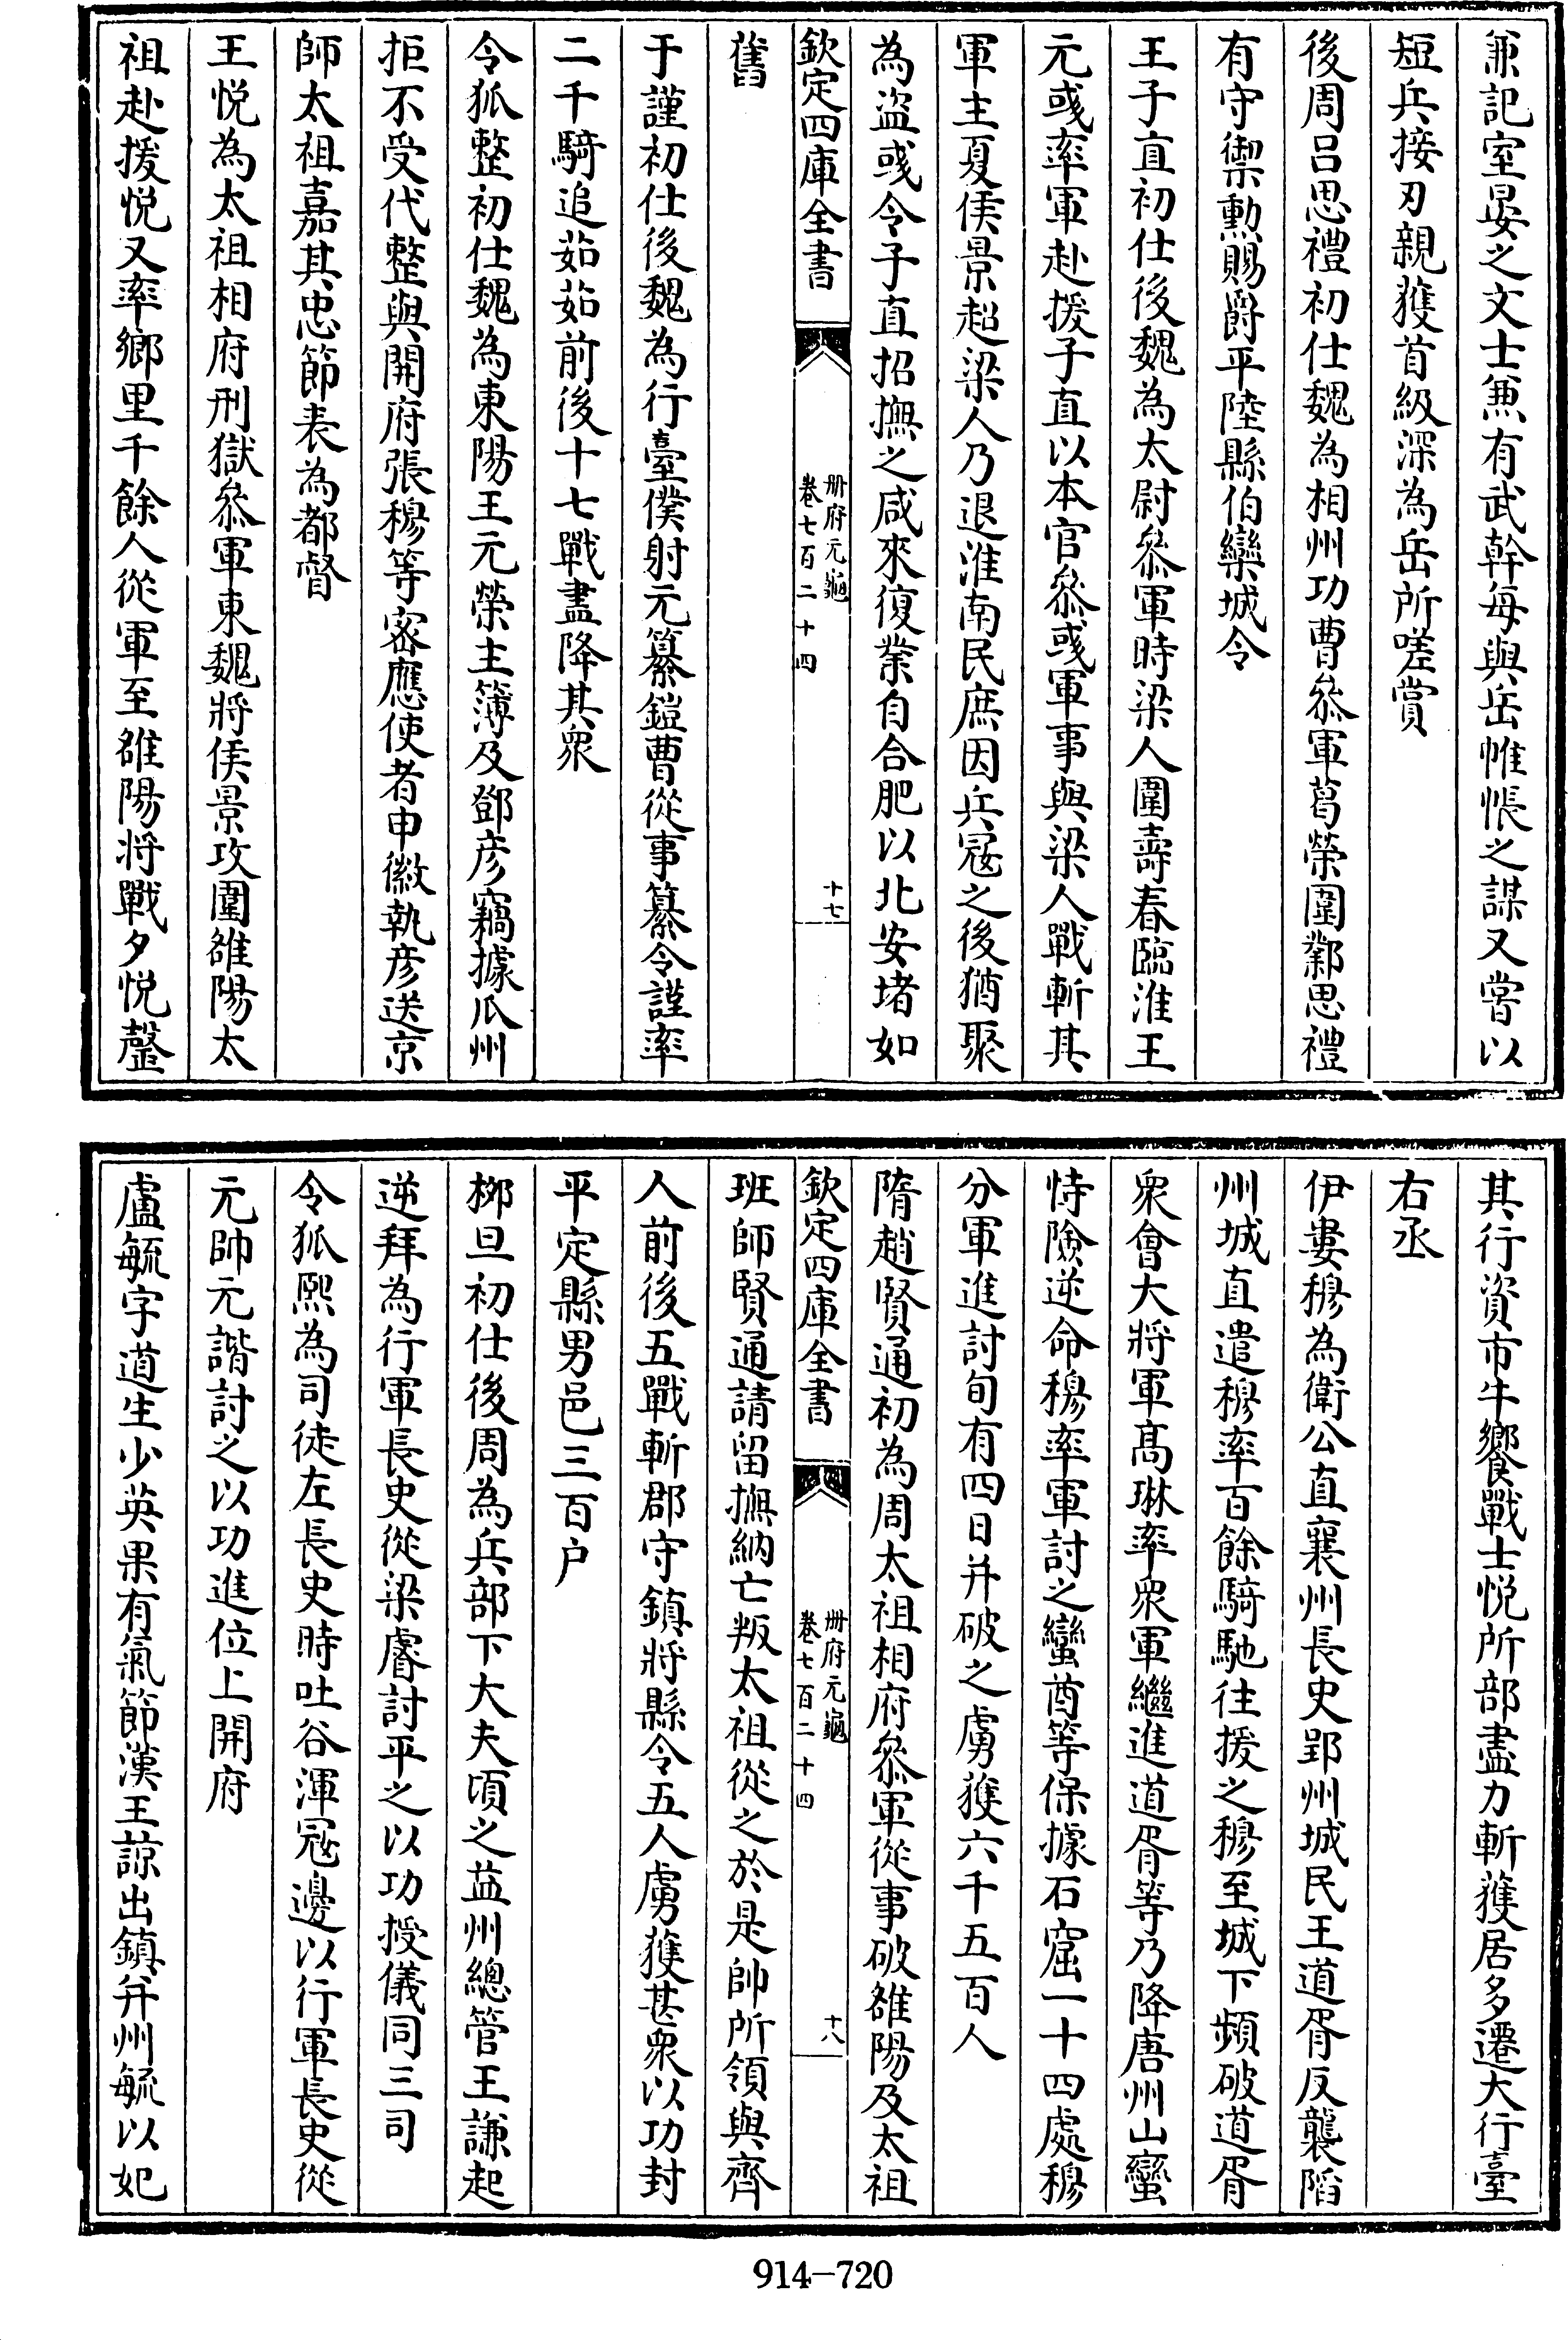 兼記室晏之文士兼有武幹每與岳帷帳之謀又嘗以
短兵接刃親獲首級深為岳所嗟賞
後周吕思禮初仕魏為相州功曹叅軍葛榮圍鄴思禮
有守禦勲賜爵平陸縣伯欒城令
王子直初仕後魏為太尉叅軍時梁人圍壽春臨淮王
元彧率軍赴援子直以本官叅彧軍事與梁人戰斬其
軍主夏侯景超梁人乃退淮南民庶因兵寇之後猶聚
為盗彧令子直招撫之咸來復業自合肥以北安堵如
欽定四庫全書
册府元龜
卷七百二十四
十七
舊
于謹初仕後魏為行臺僕射元纂鎧曹從事纂令謹率
二千騎追茹茹前後十七戰盡降其衆
令狐整初仕魏為東陽王元榮主簿及鄧彦竊據瓜州
拒不受代整與開府張穆等密應使者申徽執彦送京
師太祖嘉其忠節表為都督
王悦為太祖相府刑獄叅軍東魏將侯景攻圍雒陽太
祖赴援悦又率鄉里千餘人從軍至雒陽将戰夕悦罄
其行資市牛饗戰士悦所部盡力斬獲居多遷大行臺
右丞
伊婁穆為衛公直襄州長史郢州城民王道胥反襲陷
州城直遣穆率百餘騎馳往援之穆至城下頻破道胥
衆會大將軍髙琳率衆軍繼進道胥等乃降唐州山蠻
恃險逆命穆率軍討之蠻酋等保據石窟一十四處穆
分軍進討旬有四日并破之虜獲六千五百人
隋趙賢通初為周太祖相府叅軍從事破雒陽及太祖
欽定四庫全書
册府元龜
卷七百二十四
十八
班師賢通請留撫納亡叛太祖從之於是帥所領與齊
人前後五戰斬郡守鎮將縣令五人虜獲甚衆以功封
平定縣男邑三百户
栁旦初仕後周為兵部下大夫頃之益州總管王謙起
逆拜為行軍長史從梁睿討平之以功授儀同三司
令狐熙為司徒左長史時吐谷渾寇邊以行軍長史從
元帥元諧討之以功進位上開府
盧毓字道生少英果有氣節漢王諒出鎮并州毓以妃
914-720